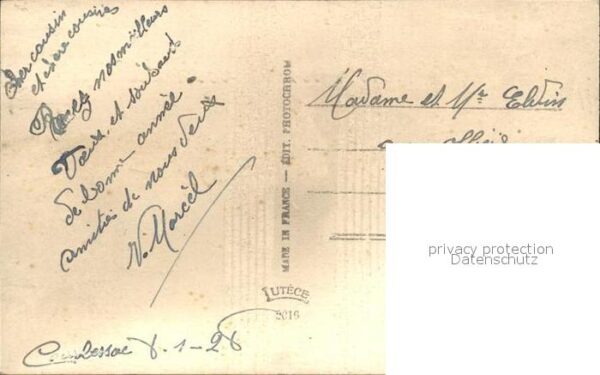 Cher cousin
et chère cousine
Recevez nos meilleurs
Vœux et souhaits
de bonne année.
amitiés de nous deux
V. Marcel
MADE IN FRANCE — ÉDIT. PHOTOCHROM
LUTÈCE
2016
Madame et Mr Elvin
privacy protection
Datenschutz
8-1-26